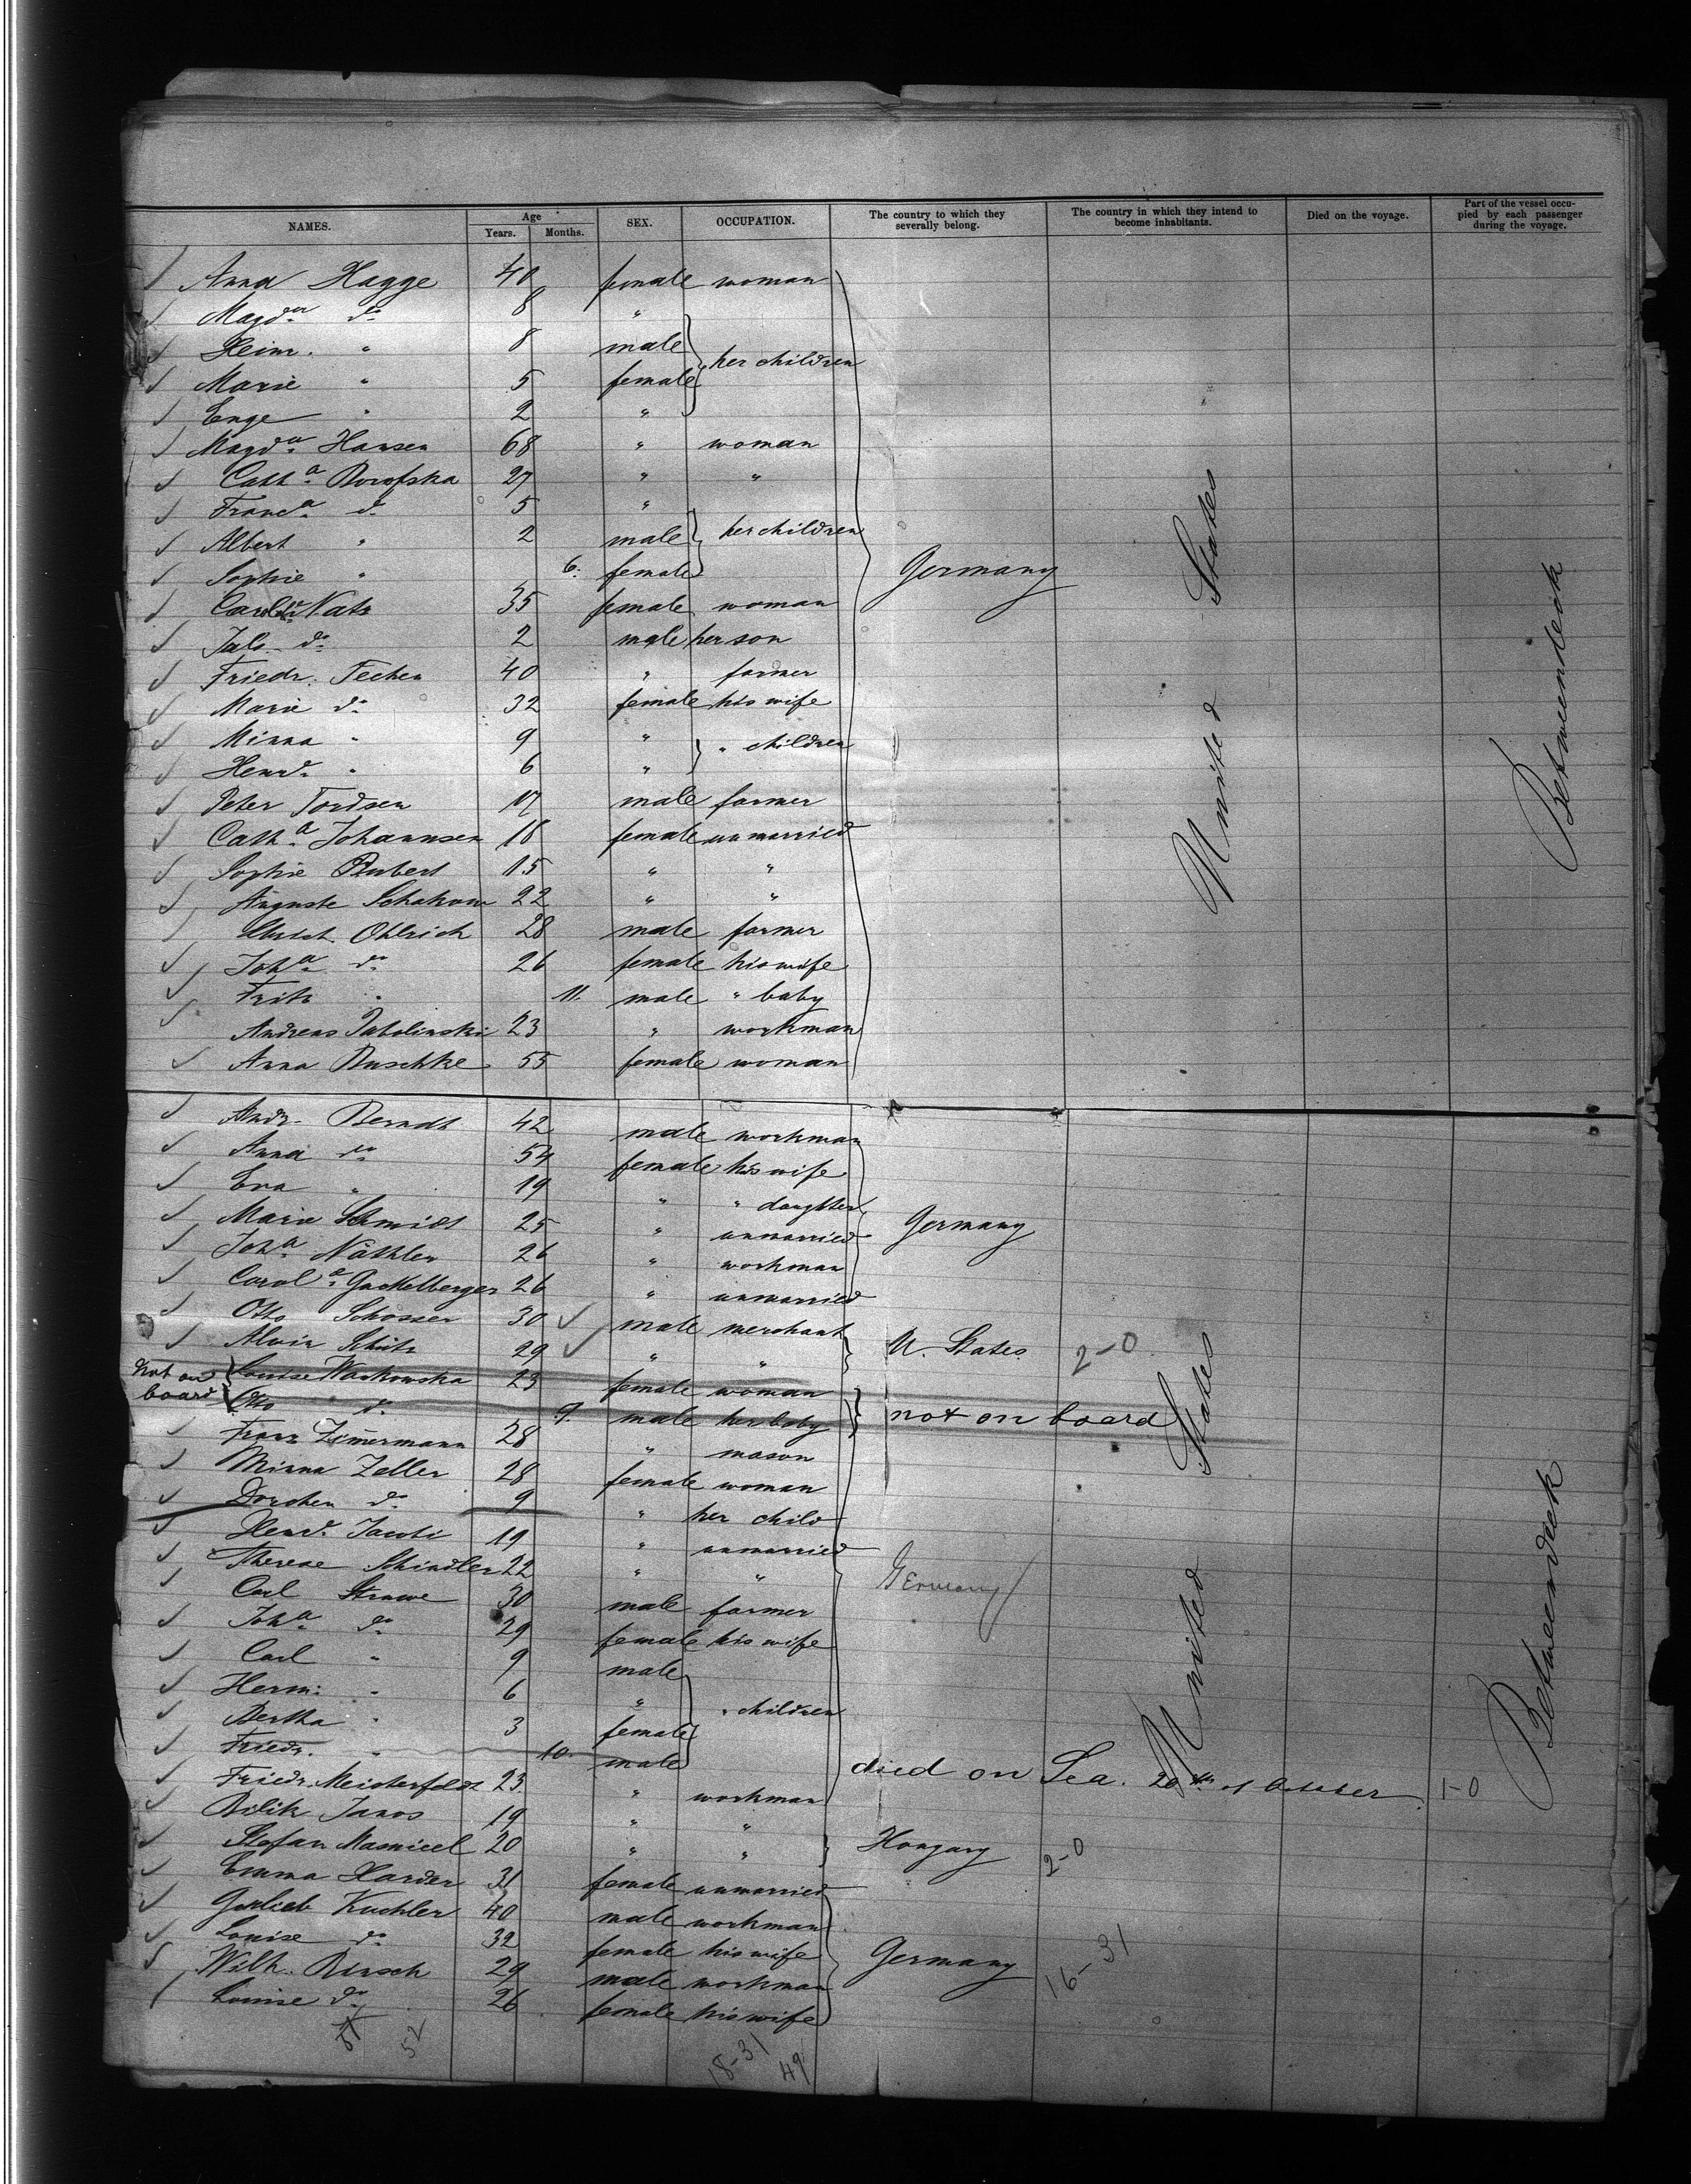 NAMES. Age Years. Months. SEX. OCCUPATION. The country to which they severally belong. The country in which they intend to become inhabitants. Died on the voyage. Part of the vessel occupied by each passenger during the voyage.
Anna Hagge 40 female woman
Magda do 8 "
Heinr. " 8 male her children
Marie " 5 female
Enge " 2 "
Magda Hansen 68 " woman
Catha Borofska 27 " "
Franca do 5 "
Albert " 2 male her children
Sophie " 6. female Germany
Natz 35 female woman
Juls. do 2 male her son
Friedr. Techen 40 " farmer
Marie do 32 female his wife
Minna " 9 " " children
Henr. " 6 "
Peter Tordsen 17 male farmer
Catha Johannsen 18 female unmarried
Sophie Rubert 15 " "
Auguste 22 " "
Christ. Ohlrich 28 male farmer
Joha do 26 female his wife
Fritz " 11. male " baby
Andreas 23 " workman
Anna Buschke 55 female woman
United States
Betweendeck
Andr. Berndt 42 male workman
Anna do 54 female his wife
Eva " 19 " " daughter
Marie Schmidt 25 " unmarried Germany
Joha Näthler 26 " workman
Carola Gackelberger 26 " unmarried
Otto Schosser 30 male merchant
Alwin Schütz 29 " " U. States 2-0
not on board Louise Waskowska 23 female woman
Otto do 9. male her baby not on board
Franz Zimermann 28 " mason
Minna Zeller 28 female woman
Dorothea do 9 " her child
Henr. Jacobi 19 " unmarried
Therese Schindler 22 " " Germany
Carl Struwe 30 male farmer
Joha do 29 female his wife
Carl " 9 male
Herm: " 6 " " children
Bertha " 3 female
Friedr. " 10. male died on Sea. 20th of October. 1-0
Friedr. Meisterfeldt 23. " workman
Bilik Janos 19 " "
Stefan 20 " " Hongary 2-0
Emma Harder 31 female unmarried
Gottlieb Kuchler 40 male workman
Louise do 32 female his wife Germany 16-31
Wilh. Rirsch 29 male workman
Louise do 26 female his wife
United States
Betweendeck
52 18-31 49